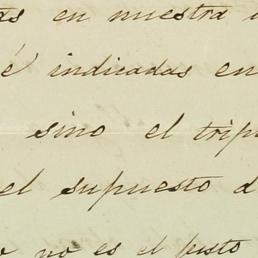 as en nuestra
é indicadas en
sino el trip
el supuesto d
no es el justo